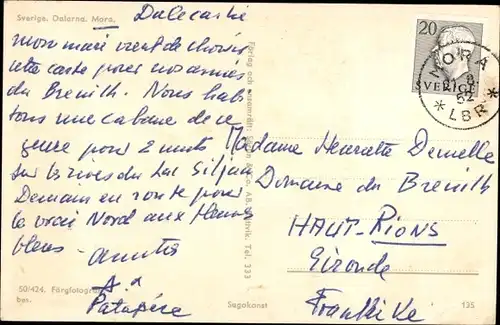 Sverige. Dalarna. Mora.
Dalecarlie
mon mari vient de choisir
cette carte pour nos amis
du Breuilh. Nous habi
tons une cabane de ce
genre pour 2 nuits
sur les rives du lac Siljan
Demain en route pour
le vrai Nord aux fleurs
bleues. amitiés
50/424. Färgfotogra
bes.
Sagokonst
Förlag och ensamrätt: AB. Tel. 333
20
SVERIGE
MORA
8
52
* LBR *
Madame
Domaine du Breuilh
HAUT-RIONS
Gironde
Frankrike
135